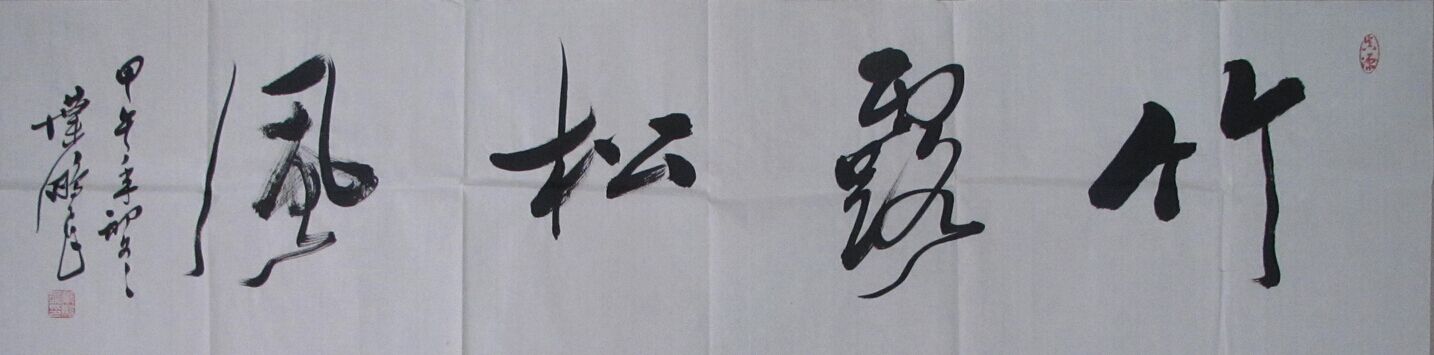 竹露松風
甲午年初冬